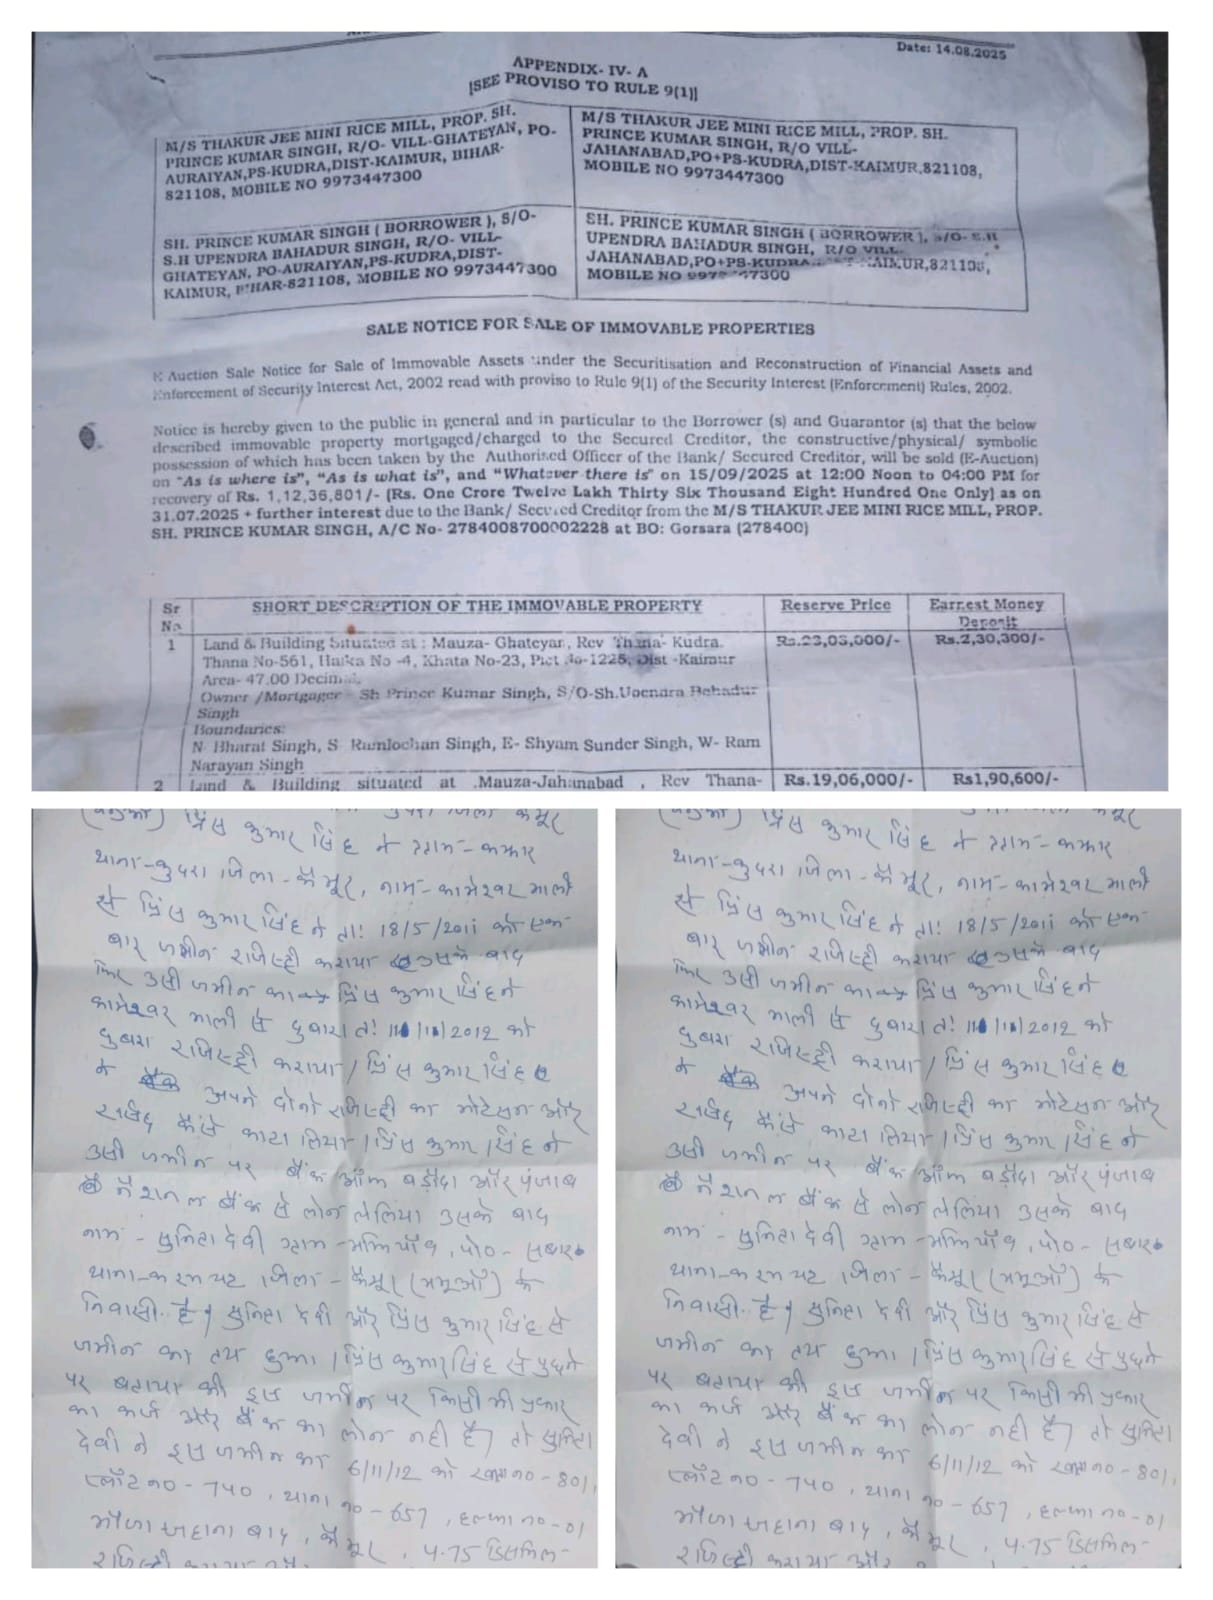 Date: 14.08.2025
APPENDIX- IV- A
[SEE PROVISO TO RULE 9(1)]
M/S THAKUR JEE MINI RICE MILL, PROP. SH.
PRINCE KUMAR SINGH, R/O- VILL-GHATEYAN, PO-
AURAIYAN,PS-KUDRA,DIST-KAIMUR, BIHAR-
821108, MOBILE NO 9973447300
M/S THAKUR JEE MINI RICE MILL, PROP. SH.
PRINCE KUMAR SINGH, R/O VILL-
JAHANABAD,PO+PS-KUDRA,DIST-KAIMUR,821108,
MOBILE NO 9973447300
SH. PRINCE KUMAR SINGH ( BORROWER ), S/O-
S.H UPENDRA BAHADUR SINGH, R/O- VILL-
GHATEYAN, PO-AURAIYAN,PS-KUDRA,DIST-
KAIMUR, BIHAR-821108, MOBILE NO 9973447300
SH. PRINCE KUMAR SINGH ( BORROWER ), S/O- S.H
UPENDRA BAHADUR SINGH, R/O VILL-
JAHANABAD,PO+PS-KUDRA, KAIMUR,821108,
MOBILE NO 47300
SALE NOTICE FOR SALE OF IMMOVABLE PROPERTIES
E Auction Sale Notice for Sale of Immovable Assets under the Securitisation and Reconstruction of Financial Assets and
Enforcement of Security Interest Act, 2002 read with proviso to Rule 9(1) of the Security Interest (Enforcement) Rules, 2002.
Notice is hereby given to the public in general and in particular to the Borrower (s) and Guarantor (s) that the below
described immovable property mortgaged/charged to the Secured Creditor, the constructive/physical/ symbolic
possession of which has been taken by the Authorised Officer of the Bank/ Secured Creditor, will be sold (E-Auction)
on "As is where is", "As is what is", and "Whatever there is" on 15/09/2025 at 12:00 Noon to 04:00 PM for
recovery of Rs. 1,12,36,801/- (Rs. One Crore Twelve Lakh Thirty Six Thousand Eight Hundred One Only) as on
31.07.2025 + further interest due to the Bank/ Secured Creditor from the M/S THAKUR JEE MINI RICE MILL, PROP.
SH. PRINCE KUMAR SINGH, A/C No- 2784008700002228 at BO: Gorsara (278400)
Sr No. SHORT DESCRIPTION OF THE IMMOVABLE PROPERTY Reserve Price Earnest Money Deposit
1 Land & Building Situated at : Mauza- Ghateyan, Rev Thana- Kudra. Rs.23,03,000/- Rs.2,30,300/-
Thana No-561, Halka No -4, Khata No-23, Plot No-1225, Dist -Kaimur
Area- 47.00 Decimal.
Owner /Mortgager - Sh Prince Kumar Singh, S/O-Sh.Upendra Bahadur
Singh
Boundaries:
N- Bharat Singh, S- Ramlochan Singh, E- Shyam Sunder Singh, W- Ram
Narayan Singh
2 Land & Building situated at .Mauza-Jahanabad , Rev Thana- Rs.19,06,000/- Rs1,90,600/-
प्रिंस कुमार सिंह ने ग्राम-
थाना-कुदरा जिला-कैमूर, नाम-कामेश्वर माली
से प्रिंस कुमार सिंह ने ता! 18/5/2011 को एक
बार जमीन रजिस्ट्री कराया उसके बाद
फिर उसी जमीन का प्रिंस कुमार सिंह ने
कामेश्वर माली से दुबारा ता! /11/2012 को
दुबारा रजिस्ट्री कराया / प्रिंस कुमार सिंह
ने अपने दोनो रजिस्ट्री का मोटेसन और
रसीद कैसे काटा लिया / प्रिंस कुमार सिंह ने
उसी जमीन पर बैंक ऑफ बड़ौदा और पंजाब
नैशनल बैंक से लोन ले लिया उसके बाद
नाम - सुनिता देवी ग्राम- , पो०- सबार
थाना-करमचट जिला - कैमूर (भभूऑ) के
निवासी है। सुनिता देवी और प्रिंस कुमार सिंह से
जमीन का तय हुआ / प्रिंस कुमार सिंह से पुछने
पर बताया की इस जमीन पर किसी भी प्रकार
का कर्ज और बैंक का लोन नही है, तो सुनिता
देवी ने इस जमीन का 6/11/12 को no-801,
प्लॉट no - 740 , थाना no-657 , हल्का no-01
मौजा जहानाबाद , कैमूर , 4.75 डिसमिल-
रजिस्ट्री कराया और
प्रिंस कुमार सिंह ने ग्राम-
थाना-कुदरा जिला-कैमूर, नाम-कामेश्वर माली
से प्रिंस कुमार सिंह ने ता! 18/5/2011 को एक
बार जमीन रजिस्ट्री कराया उसके बाद
फिर उसी जमीन का प्रिंस कुमार सिंह ने
कामेश्वर माली से दुबारा ता! /11/2012 को
दुबारा रजिस्ट्री कराया / प्रिंस कुमार सिंह
ने अपने दोनो रजिस्ट्री का मोटेसन और
रसीद कैसे काटा लिया / प्रिंस कुमार सिंह ने
उसी जमीन पर बैंक ऑफ बड़ौदा और पंजाब
नैशनल बैंक से लोन ले लिया उसके बाद
नाम - सुनिता देवी ग्राम- , पो०- सबार
थाना-करमचट जिला - कैमूर (भभूऑ) के
निवासी है। सुनिता देवी और प्रिंस कुमार सिंह से
जमीन का तय हुआ / प्रिंस कुमार सिंह से पुछने
पर बताया की इस जमीन पर किसी भी प्रकार
का कर्ज और बैंक का लोन नही है, तो सुनिता
देवी ने इस जमीन का 6/11/12 को no-801,
प्लॉट no - 740 , थाना no-657 , हल्का no-01
मौजा जहानाबाद , कैमूर , 4.75 डिसमिल-
रजिस्ट्री कराया और